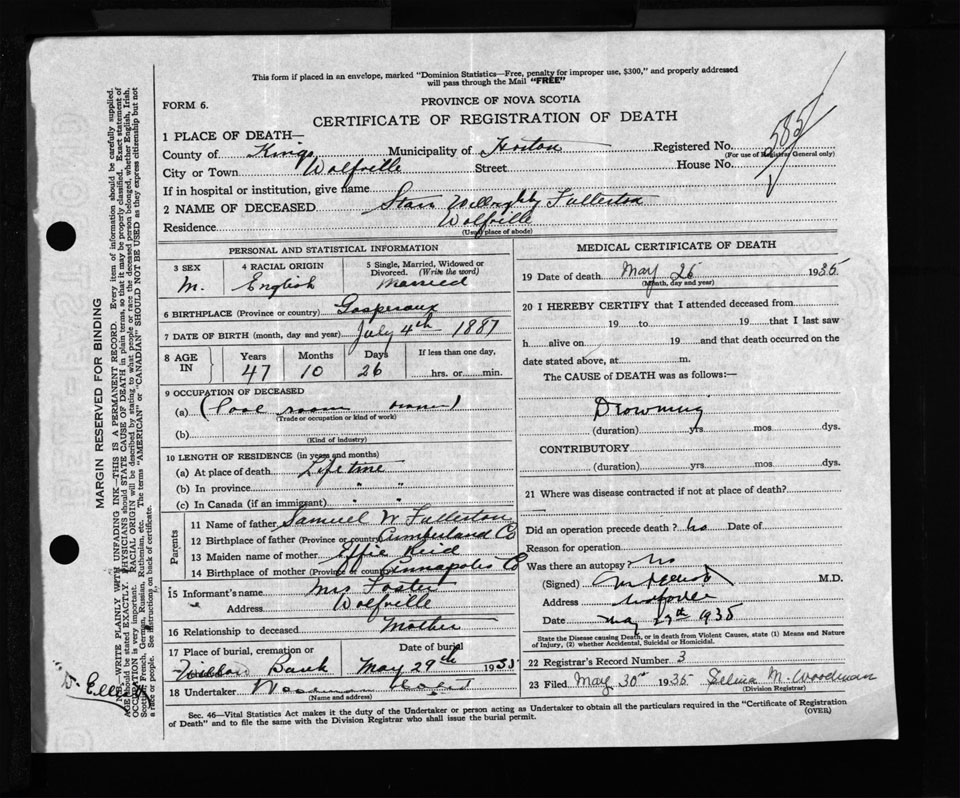 This form if placed in an envelope, marked "Dominion Statistics—Free, penalty for improper use, $300," and properly addressed
will pass through the Mail "FREE"
FORM 6.
PROVINCE OF NOVA SCOTIA
CERTIFICATE OF REGISTRATION OF DEATH
585
1 PLACE OF DEATH—
County of Kings Municipality of Horton Registered No.
(For use of Registrar General only)
City or Town Wolfville Street House No.
If in hospital or institution, give name
2 NAME OF DECEASED Starr Willoughby Fullerton
Residence Wolfville
(Usual place of abode)
PERSONAL AND STATISTICAL INFORMATION
3 SEX 4 RACIAL ORIGIN 5 Single, Married, Widowed or
Divorced. (Write the word)
M. English Married
6 BIRTHPLACE (Province or country) Gaspereaux
7 DATE OF BIRTH (month, day and year) July 4th 1887
8 AGE IN Years Months Days If less than one day,
47 10 26 hrs. or min.
9 OCCUPATION OF DECEASED
(a) (Pool room owner)
(Trade or occupation or kind of work)
(b)
(Kind of industry)
10 LENGTH OF RESIDENCE (in years and months)
(a) At place of death Life time
(b) In province " "
(c) In Canada (if an immigrant) " "
Parents
11 Name of father Samuel W Fullerton
12 Birthplace of father (Province or country) Cumberland Co
13 Maiden name of mother Effie Reid
14 Birthplace of mother (Province or country) Annapolis Co
15 Informant's name Mrs Foster
Address Wolfville
16 Relationship to deceased Mother
17 Place of burial, cremation or Date of burial
Bank May 29th 1935
18 Undertaker Woodman
(Name and address)
MEDICAL CERTIFICATE OF DEATH
19 Date of death May 26 1935
(Month, day and year)
20 I HEREBY CERTIFY that I attended deceased from
19 to 19 that I last saw
h alive on 19 and that death occurred on the
date stated above, at m.
The CAUSE of DEATH was as follows:—
Drowning
(duration) yrs. mos dys.
CONTRIBUTORY
(duration) yrs. mos dys.
21 Where was disease contracted if not at place of death?
Did an operation precede death? no Date of
Reason for operation
Was there an autopsy? no
(Signed) M.D.
Address
Date May 29th 1935
State the Disease causing Death, or in death from Violent Causes, state (1) Means and Nature
of Injury, (2) whether Accidental, Suicidal or Homicidal.
22 Registrar's Record Number 3
23 Filed May 30th 1935 Selina M. Woodman
(Division Registrar)
Sec. 46—Vital Statistics Act makes it the duty of the Undertaker or person acting as Undertaker to obtain all the particulars required in the "Certificate of Registration
of Death" and to file the same with the Division Registrar who shall issue the burial permit.
(OVER)
MARGIN RESERVED FOR BINDING
WRITE PLAINLY WITH UNFADING INK—THIS IS A PERMANENT RECORD. Every item of information should be carefully supplied.
AGE should be stated EXACTLY. PHYSICIANS should STATE CAUSE OF DEATH in plain terms, so that it may be properly classified. Exact statement of
OCCUPATION is very important. RACIAL ORIGIN will be described by stating to what people or race the deceased person belonged, whether English, Irish,
Scotch, French, German, Russian, Ruthenian, etc. The terms "AMERICAN" or "CANADIAN" SHOULD NOT BE USED as they express citizenship but not
a race or people. See instructions on back of certificate.